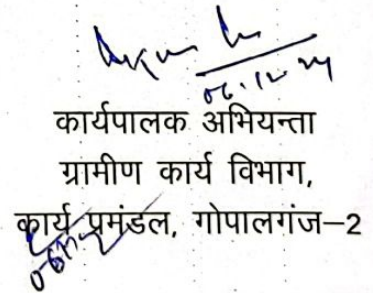 06.12.24
कार्यपालक अभियन्ता
ग्रामीण कार्य विभाग,
कार्य प्रमंडल, गोपालगंज–2